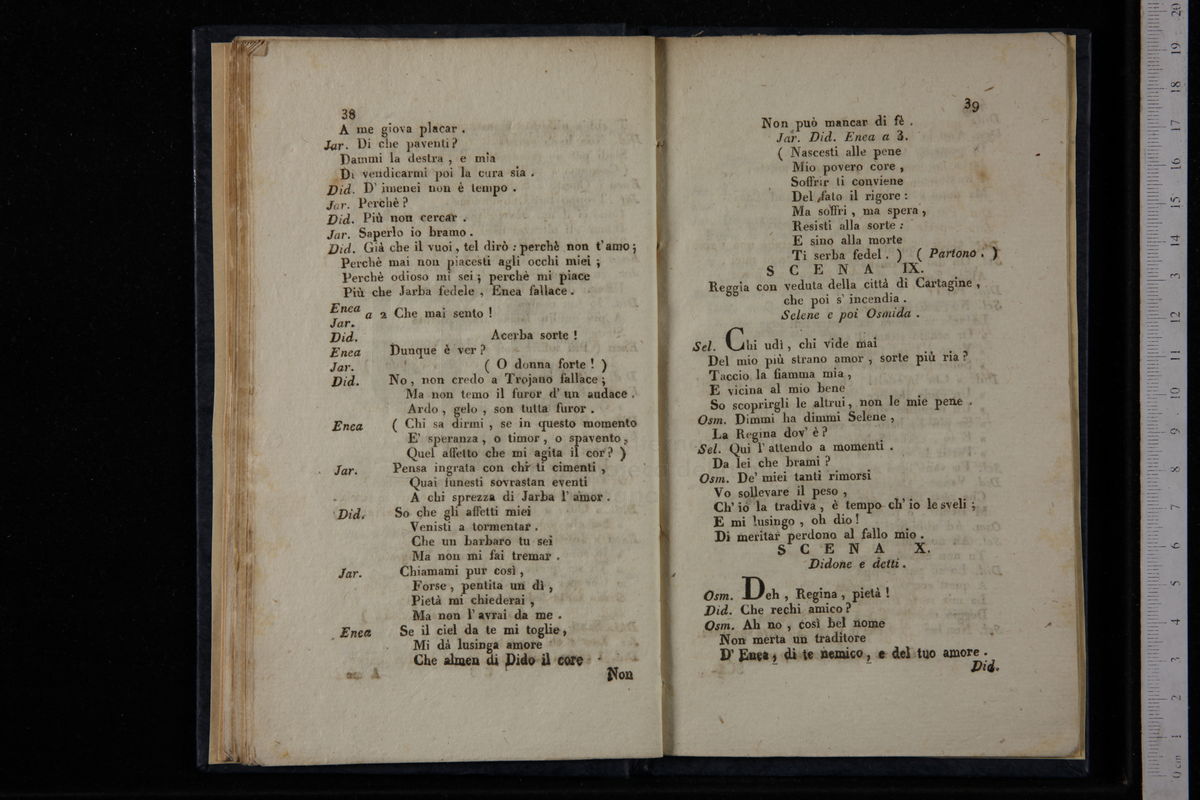 38
A me giova placar .
Jar. Di che paventi?
Dammi la destra , e mia
Di vendicarmi poi la cura sia .
Did. D' imenei non é tempo .
Jar. Perchè ?
Did. Più non cercar .
Jar. Saperlo io bramo .
Did. Già che il vuoi, tel dirò : perchè non t'amo ;
Perchè mai non piacesti agli occhi miei ;
Perchè odioso mi sei ; perchè mi piace
Più che Jarba fedele , Enea fallace .
Enea a 2 Che mai sento !
Jar.
Did. Acerba sorte !
Enea Dunque è ver ?
Jar. ( O donna forte ! )
Did. No, non credo a Trojano fallace ;
Ma non temo il furor d' un audace .
Ardo , gelo , son tutta furor .
Enea ( Chi sa dirmi , se in questo momento
E' speranza , o timor , o spavento,
Quel affetto che mi agita il cor ? )
Jar. Pensa ingrata con chi ti cimenti ,
Quai funesti sovrastan eventi
A chi sprezza di Jarba l' amor .
Did. So che gli affetti miei
Venisti a tormentar .
Che un barbaro tu sei
Ma non mi fai tremar .
Jar. Chiamami pur così ,
Forse , pentita un dì ,
Pietà mi chiederai ,
Ma non l' avrai da me .
Enea Se il ciel da te mi toglie,
Mi dà lusinga amore
Che almen di Dido il core
Non
39
Non può mancar di fè .
Jar. Did. Enea a 3.
( Nascesti alle pene
Mio povero core ,
Soffrir ti conviene
Del fato il rigore :
Ma soffri , ma spera ,
Resisti alla sorte :
E sino alla morte
Ti serba fedel . ) ( Partono . )
SCENA IX.
Reggia con veduta della città di Cartagine ,
che poi s' incendia .
Selene e poi Osmida .
Sel. Chi udì , chi vide mai
Del mio più strano amor , sorte più ria ?
Taccio la fiamma mia ,
E vicina al mio bene
So scoprirgli le altrui, non le mie pene .
Osm. Dimmi ha dimmi Selene ,
La Regina dov' è ?
Sel. Qui l' attendo a momenti .
Da lei che brami ?
Osm. De' miei tanti rimorsi
Vo sollevare il peso ,
Ch' io la tradiva , è tempo ch' io le sveli ;
E mi lusingo , oh dio !
Di meritar perdono al fallo mio .
SCENA X.
Didone e detti .
Osm. Deh , Regina , pietà !
Did. Che rechi amico ?
Osm. Ah no , così bel nome
Non merta un traditore
D' Enea , di te nemico , e del tuo amore .
Did.
0 cm 1 2 3 4 5 6 7 8 9 10 11 12 13 14 15 16 17 18 19 20